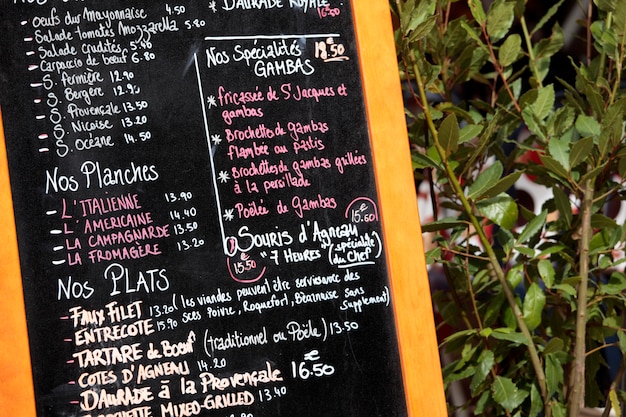 oeufs durs Mayonnaise 4.50
- Salade tomates Mozzarella
- Salade crudités 5.40
- Carpaccio de bœuf 6.80
- S. fermière 12.90
- S. Bergère 12.90
- S. Provençale 13.50
- S. Nicoise 13.20
- S. Océane 14.50
Nos Planches
- L'ITALIENNE 13.90
- L'AMERICAINE 14.40
- LA CAMPAGNARDE 13.50
- LA FROMAGÈRE 13.20
DAURADE Royale 16.50
Nos Spécialités 18.50
GAMBAS
* fricassée de St Jacques et
gambas
* Brochettes de gambas
flambée au pastis
* Brochettes de gambas grillées
à la persillade
* Poêlée de Gambas 15.50€
SOURIS d'Agneau
15.50€ 7 HEURES (spécialité du Chef)
NOS PLATS
- FAUX FILET 13.20 (les viandes peuvent être servies avec des
- ENTRECOTE 15.90 Sces Poivre, Roquefort, Béarnaise sans supplément)
- TARTARE de Bœuf (traditionnel ou Poêlé) 13.50
- COTES D'AGNEAU 14.20
- DAURADE à la Provençale 16.50€
MIXED-GRILLED 13.40